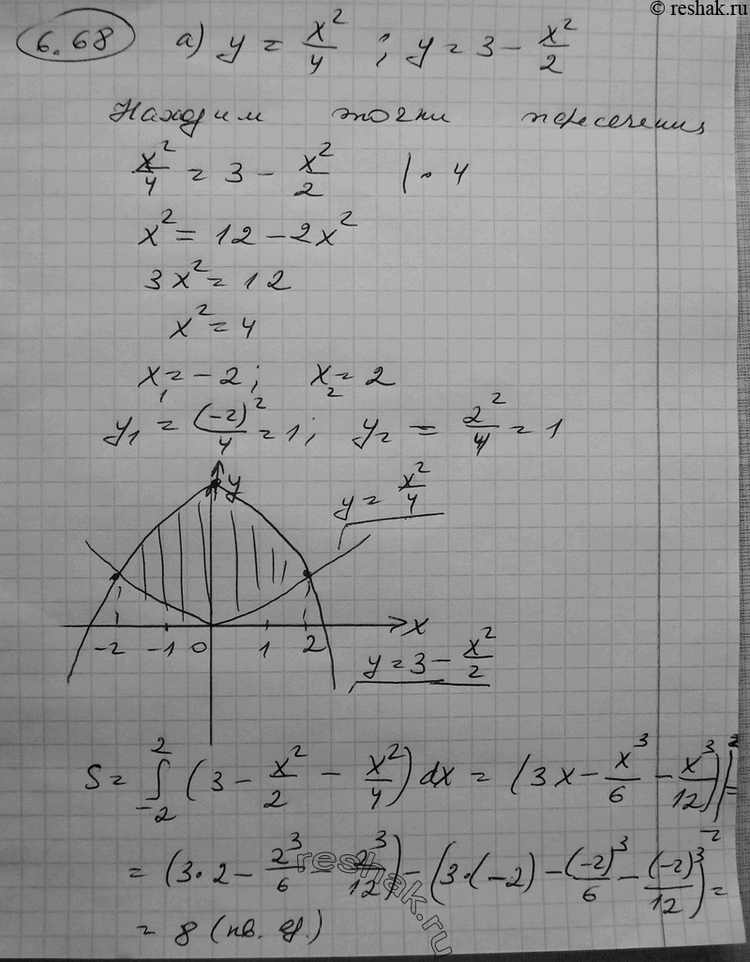 © reshak.ru
6.68 а) y = x²/4 ; y = 3 - x²/2
Находим точки пересечения
x²/4 = 3 - x²/2 | · 4
x² = 12 - 2x²
3x² = 12
x² = 4
x₁ = -2; x₂ = 2
y₁ = (-2)²/4 = 1; y₂ = 2²/4 = 1
y
y = x²/4
x
-2 -1 0 1 2
y = 3 - x²/2
S = ∫₋₂² (3 - x²/2 - x²/4) dx = (3x - x³/6 - x³/12)|₋₂² =
= (3·2 - 2³/6 - 2³/12) - (3·(-2) - (-2)³/6 - (-2)³/12) =
= 8 (кв. ед.)
reshak.ru